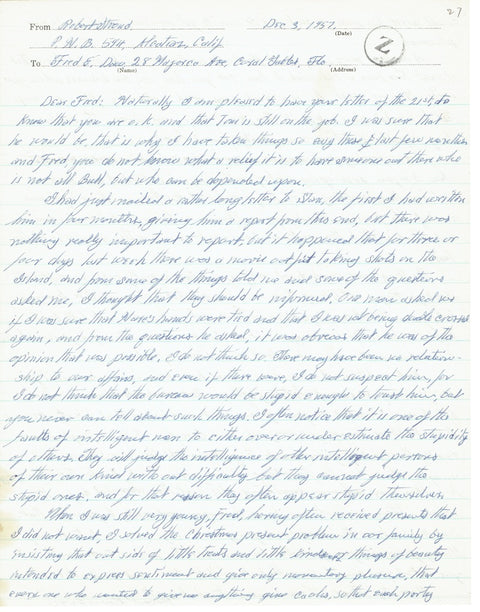 27
From Robert Stroud Dec 3, 1957.
(Date)
P. M. B. 594, Alcatraz, Calif
Z
To Fred E. Daw, 28 Majorca Ave, Coral Gables, Fla.
(Name) (Address)
Dear Fred: Naturally I am pleased to have your letter of the 21st, to
know that you are o.k. and that Tom is still on the job. I was sure that
he would be, that is why I have taken things so easy these last few months
and Fred, you do not know what a relief it is to have someone out there who
is not all Bull, but who can be depended upon.
I had just mailed a rather long letter to Stan, the first I had written
him in four months, giving him a report from this end, but there was
nothing really important to report, but it happened that for three or
four days last week there was a movie outfit taking shots on the
Island, and from some of the things told me and some of the questions
asked me, I thought that they should be informed. One man asked me
if I was sure that hands were tied and that I was not being double crossed
again, and from the questions he asked, it was obvious that he was of the
opinion that was possible. I do not think so. There may have been no relation-
ship to our affairs, and even if there were, I do not suspect him, for
I do not think that the bureau would be stupid enough to trust him, but
you never can tell about such things. I often notice that it is one of the
faults of intelligent men to either over or under estimate the stupidity
of others. They will judge the intelligence of other intelligent persons
of their own kind with out difficulty but they cannot judge the
stupid ones, and for that reason they often appear stupid themselves
When I was still very young, Fred, having often received presents that
I did not want, I solved the Christmas present problem in our family by
insisting that out side of little treats and little things of beauty
intended to express sentiment and give only momentary pleasure, that
every one who wanted to give me anything give cash, so that each party